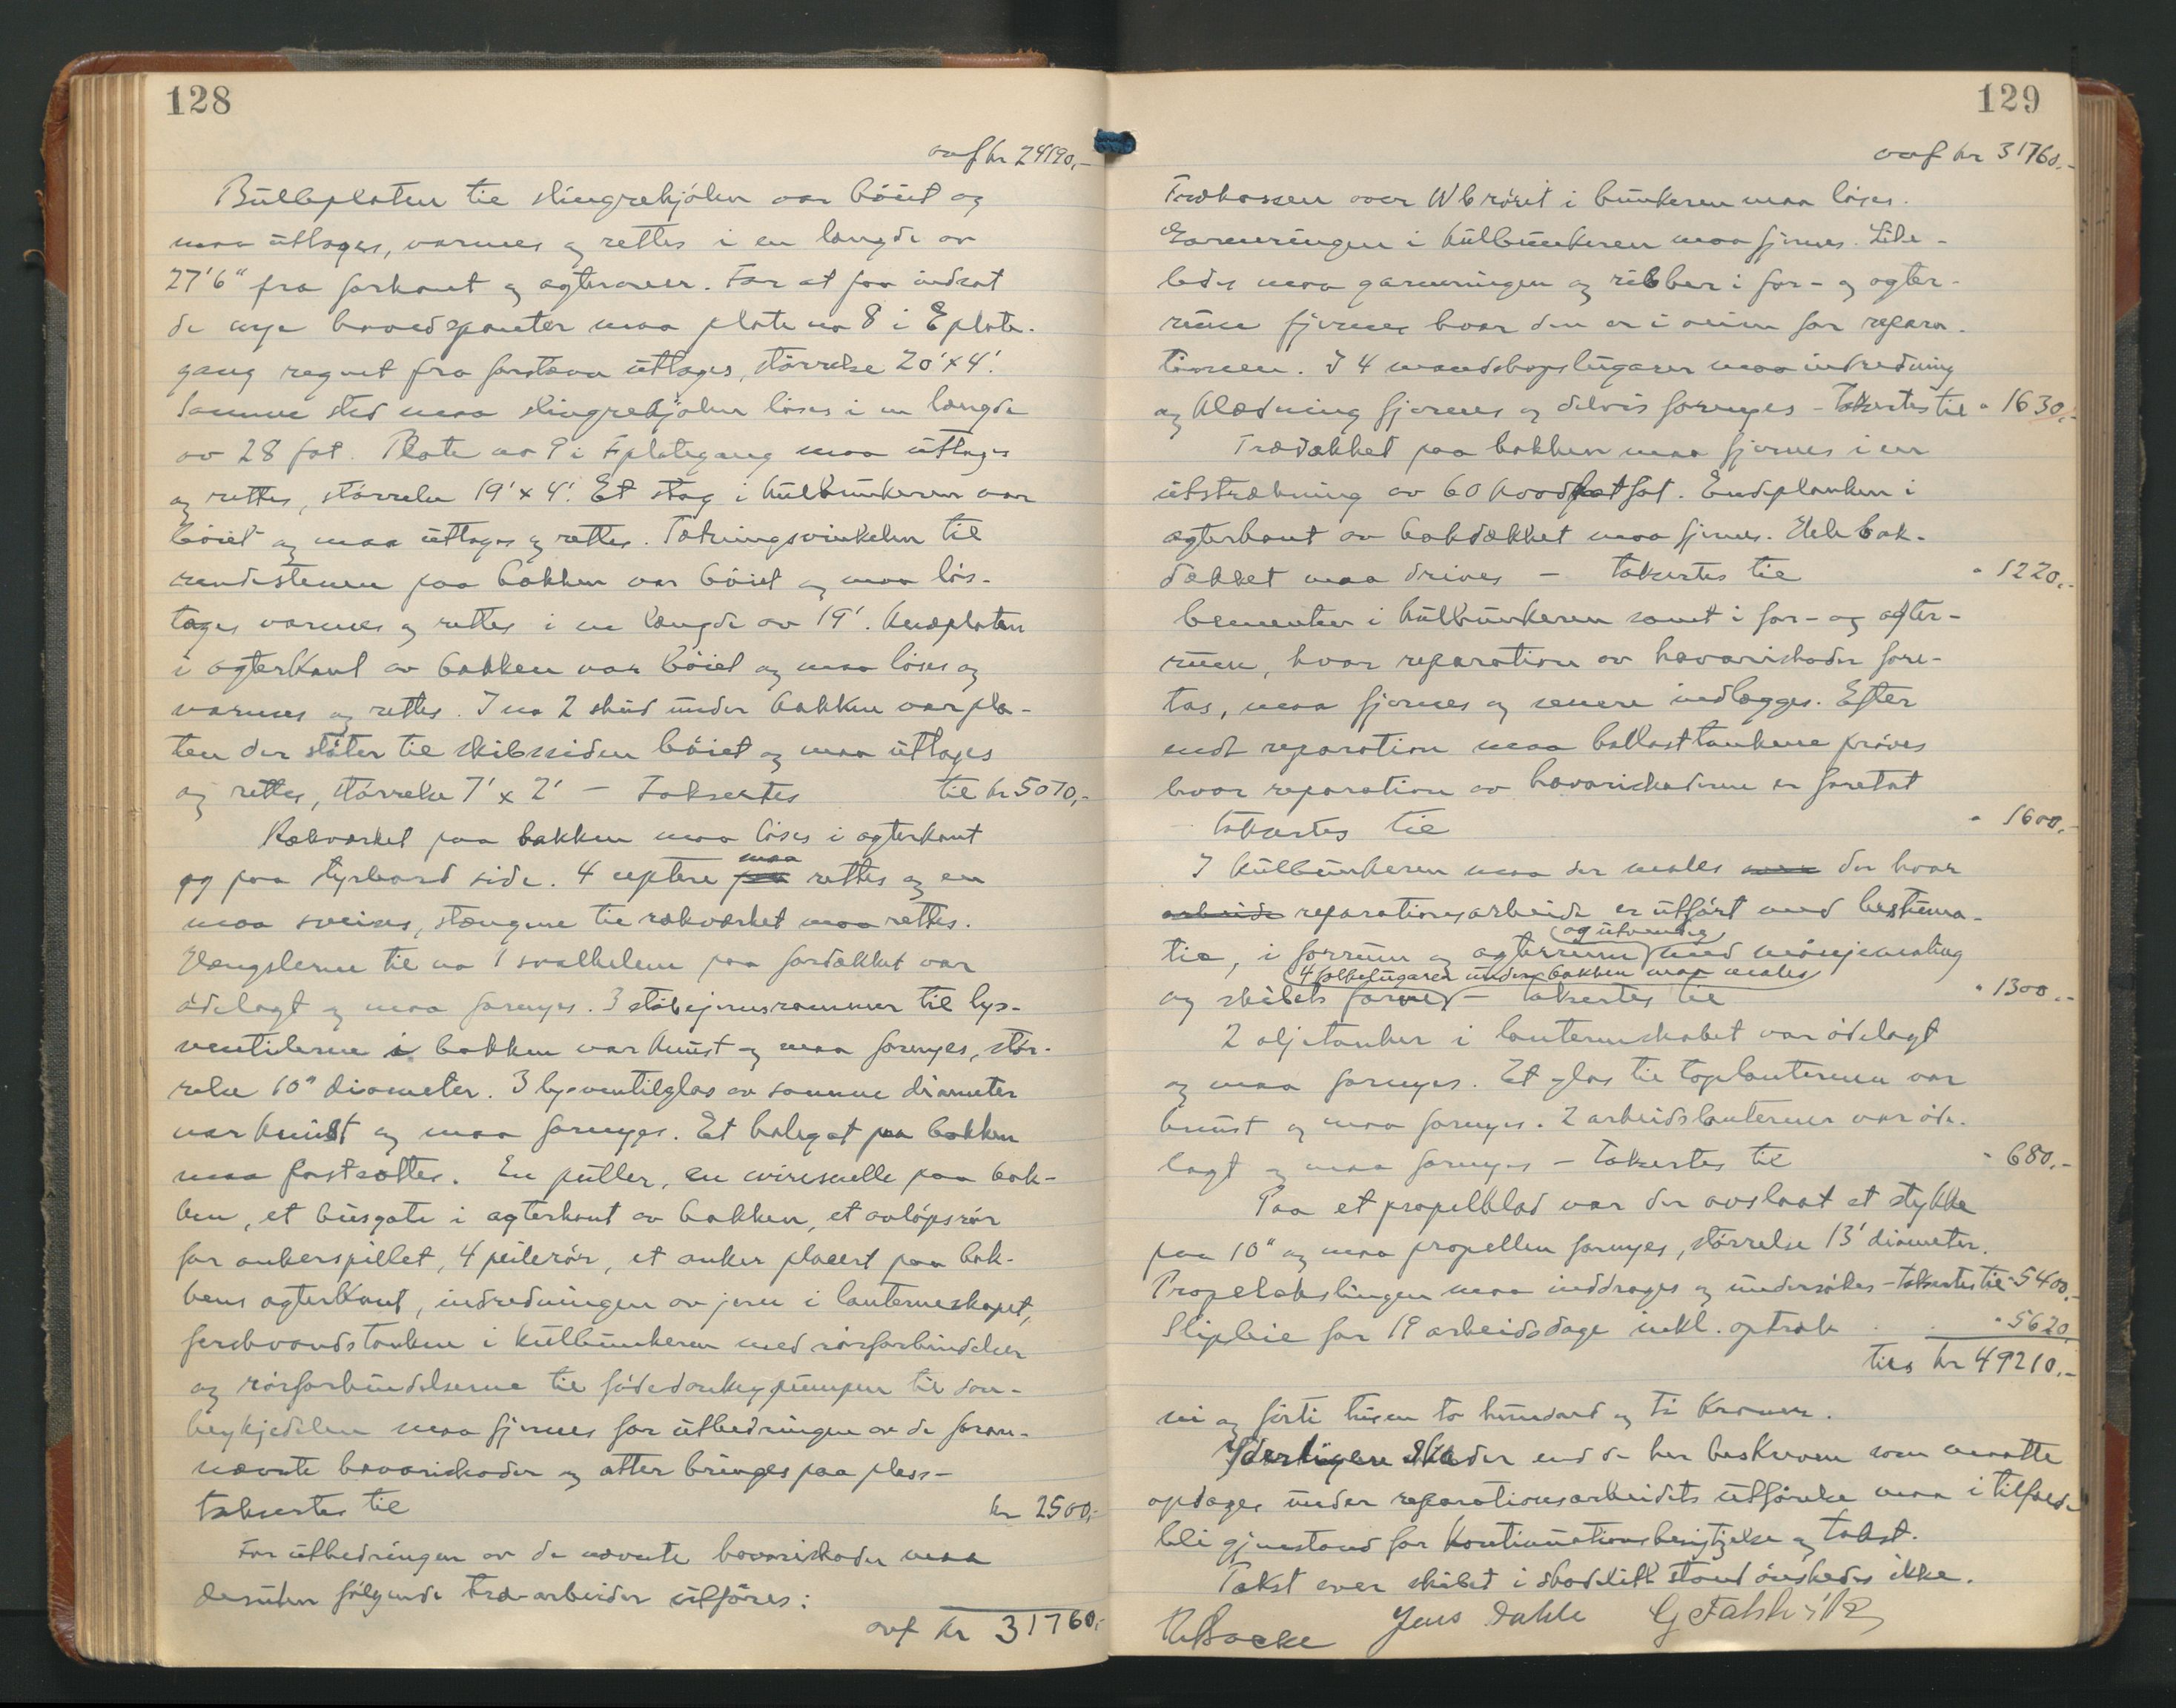 128
ovf kr 24190,-
Bulbplaten til slingrekjölen var böiet og
maa uttages, varmes og rettes i en længde av
27'6" fra forkant og agterover. For at faa indsat
de nye baandspanter maa plate no 8 i E plate-
gang regnet fra forstævn uttages, störrelse 20'x4'.
Samme sted maa slingrekjölen löses i en længde
av 28 fot. Plate no 9 i F plategang maa uttages
og rettes, störrelse 19'x4'. Et stag i kulbunkeren var
böiet og maa uttages og rettes. Tætningsvinkelen til
rendestenen paa bakken var böiet og maa lös-
tages varmes og rettes i en længde av 19'. Knæplaten
i agterkant av bakken var böiet og maa löses og
varmes og rettes. I no 2 skud under bakken var pla-
ten der stöter til skibssiden böiet og maa uttages
og rettes, störrelse 7' x 2' – Taksertes til kr 5070,-
Rækværket paa bakken maa löses i agterkant
og paa styrbord side. 4 septere maa rettes og en
maa sveises, stængene til rækværket maa rettes.
Hængslerne til no 1 svalhelem paa fordækket var
ödelagt og maa fornyes. 3 stöbejernsrammer til lys-
ventilerne i bakken var knust og maa fornyes, stör-
relse 10" diameter. 3 lysventilglas av samme diameter
var knust og maa fornyes. Et halegat paa bakken
maa fastsættes. En puller, en wiresnelle paa bak-
ken, et busgate i agterkant av bakken, et avlöpsrör
for ankerspillet, 4 peilerör, et anker placert paa bak-
kens agterkant, indredningen av jern i lanterneskapet,
ferskvandstanken i kulbunkeren med rörforbindelser
og rörforbindelserne til födedonkeypumpen til don-
keykjedelen maa fjernes for utbedringen av de foran-
nævnte havariskader og atter bringes paa plass –
taksertes til kr 2500,-
For utbedringen av de nævnte havariskader maa
desuten fölgende træ-arbeider utföres:
ovf kr 31760,-
129
ovf kr 31760,-
Trækassen over W b röret i bunkeren maa löses.
Garneringen i kulbunkeren maa fjernes. Like-
ledes maa garneringen og ribber i for- og agter-
rum fjernes hvor den er i veien for repara-
tionen. I 4 mandskapslugarer maa indredning
og klædning fjernes og delvis fornyes – Taksertes til " 1630,-
Trædækket paa bakken maa fjernes i en
utstrækning av 60 kvadratfot. Endeplanken i
agterkant av bakdækket maa fjernes. Hele bak-
dækket maa drives – taksertes til " 1220,-
Cementen i kulbunkeren samt i for- og agter-
rum, hvor reparation av havariskader fore-
tas, maa fjernes og senere indlægges. Efter
endt reparation maa ballasttankene pröves
hvor reparation av havariskaderne er foretat
taksertes til " 1600,-
I kulbunkeren maa der males der hvor
arbeide reparationsarbeide er utfört med bestuma-
tic, i forrum og agterrum og utvendig med mönjemaling
og skibets farve – 4 folkelugarer under bakken maa males taksertes til " 1300,-
2 oljetanker i lanterneskabet var ödelagt
og maa fornyes. Et glas til toplanternen var
knust og maa fornyes. 2 arbeidslanterner var öde-
lagt og maa fornyes – Taksertes til " 680,-
Paa et propelblad var der avslaat et stykke
paa 10" og maa propellen fornyes, störrelse 13' diameter.
Propelakslingen maa inddrages og undersökes – taksertes til " 5400,-
Slipleie for 19 arbeidsdage inkl. optræk " 5620,
tils kr 49210,-
ni og förti tusen to hundred og ti Kroner.
Yderligere skader end de her beskrevne som maatte
opdages under reparationsarbeidets utförelse maa i tilfælde
bli gjenstand for kontinuationsbesigtigelse og takst.
Takst over skibet i skadelidt stand önskedes ikke.
Jens Dahle